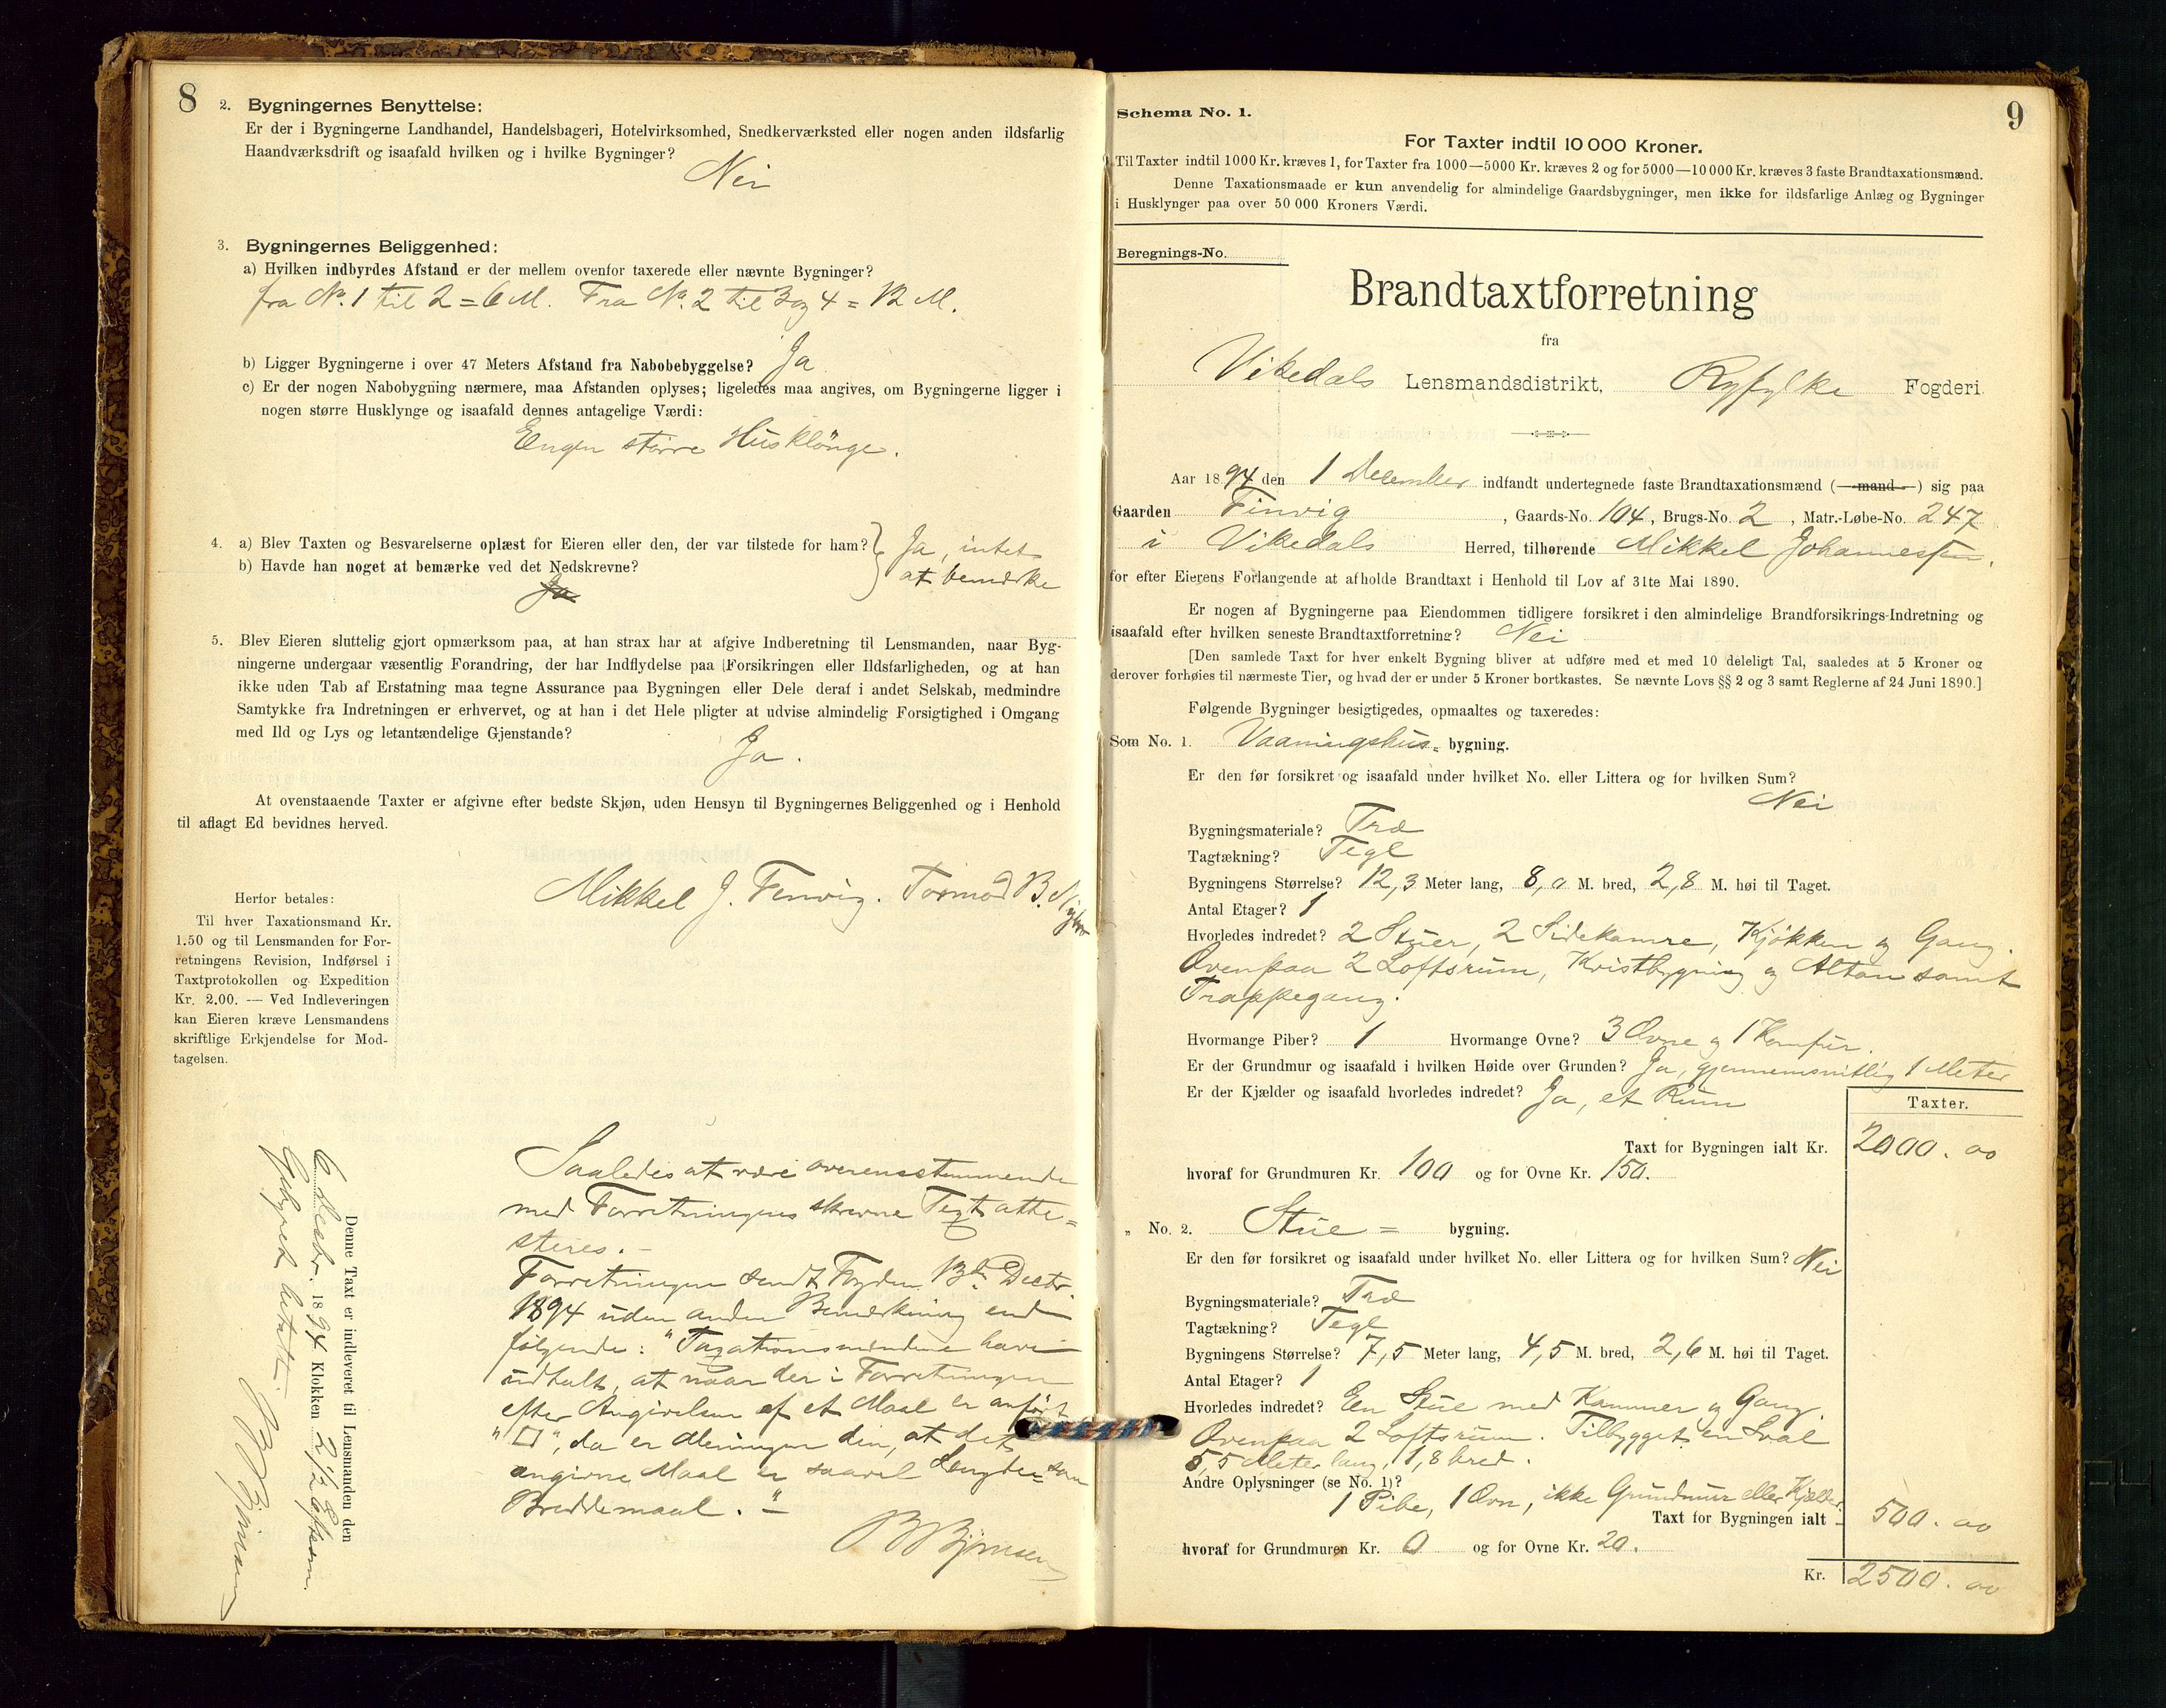 8
2. Bygningernes Benyttelse:
Er der i Bygningerne Landhandel, Handelsbageri, Hotelvirksomhed, Snedkerværksted eller nogen anden ildsfarlig
Haandværksdrift og isaafald hvilken og i hvilke Bygninger?
Nei
3. Bygningernes Beliggenhed:
a) Hvilken indbyrdes Afstand er der mellem ovenfor taxerede eller nævnte Bygninger?
fra No. 1 til 2 = 6 M. Fra No. 2 til 3 og 4 = 12 M.
b) Ligger Bygningerne i over 47 Meters Afstand fra Nabobebyggelse? Ja
c) Er der nogen Nabobygning nærmere, maa Afstanden oplyses; ligeledes maa angives, om Bygningerne ligger i
nogen større Husklynge og isaafald dennes antagelige Værdi:
Engen större Husklönge.
4. a) Blev Taxten og Besvarelserne oplæst for Eieren eller den, der var tilstede for ham? } Ja, intet
b) Havde han noget at bemærke ved det Nedskrevne? at bemærke
Ja
5. Blev Eieren sluttelig gjort opmærksom paa, at han strax har at afgive Indberetning til Lensmanden, naar Byg-
ningerne undergaar væsentlig Forandring, der har Indflydelse paa Forsikringen eller Ildsfarligheden, og at han
ikke uden Tab af Erstatning maa tegne Assurance paa Bygningen eller Dele deraf i andet Selskab, medmindre
Samtykke fra Indretningen er erhvervet, og at han i det Hele pligter at udvise almindelig Forsigtighed i Omgang
med Ild og Lys og letantændelige Gjenstande?
Ja.
At ovenstaaende Taxter er afgivne efter bedste Skjøn, uden Hensyn til Bygningernes Beliggenhed og i Henhold
til aflagt Ed bevidnes herved.
Mikkel J. Fenvig. Tormod B.
Herfor betales:
Til hver Taxationsmand Kr.
1.50 og til Lensmanden for For-
retningens Revision, Indførsel i
Taxtprotokollen og Expedition
Kr. 2.00. — Ved Indleveringen
kan Eieren kræve Lensmandens
skriftlige Erkjendelse for Mod-
tagelsen.
Saaledes at være overensstemmende
med Forretningens skrevne Text atte=
steres. -
Forretningen sendt Fogden 13de Decbr.
1894 uden anden Bemærkning end
følgende: "Taxationsmændene have
udtalt, at naar der i Forretningen
efter Angivelsen af et Maal er anført
"□", da er Meningen den, at det
angivne Maal er saavel Længde= som
Breddemaal."-
B Bjørnsen
Denne Taxt er indleveret til Lensmanden den
6 Decbr. 1894 Klokken 2½ Efterm.
Gebyret betalt. B Bjørnsen
9
Schema No. 1.
For Taxter indtil 10 000 Kroner.
Til Taxter indtil 1000 Kr. kræves 1, for Taxter fra 1000—5000 Kr. kræves 2 og for 5000—10 000 Kr. kræves 3 faste Brandtaxationsmænd.
Denne Taxationsmaade er kun anvendelig for almindelige Gaardsbygninger, men ikke for ildsfarlige Anlæg og Bygninger
i Husklynger paa over 50 000 Kroners Værdi.
Beregnings-No.
Brandtaxtforretning
fra
Vikedals Lensmandsdistrikt, Ryfylke Fogderi
Aar 1894 den 1 December indfandt undertegnede faste Brandtaxationsmænd (mand) sig paa
Gaarden Finvig, Gaards-No. 104, Brugs-No. 2, Matr.-Løbe-No. 247
i Vikedals Herred, tilhørende Mikkel Johannessen.
for efter Eierens Forlangende at afholde Brandtaxt i Henhold til Lov af 31te Mai 1890.
Er nogen af Bygningerne paa Eiendommen tidligere forsikret i den almindelige Brandforsikrings-Indretning og
isaafald efter hvilken seneste Brandtaxtforretning? Nei
[Den samlede Taxt for hver enkelt Bygning bliver at udføre med et med 10 deleligt Tal, saaledes at 5 Kroner og
derover forhøies til nærmeste Tier, og hvad der er under 5 Kroner bortkastes. Se nævnte Lovs §§ 2 og 3 samt Reglerne af 24 Juni 1890.]
Følgende Bygninger besigtigedes, opmaaltes og taxeredes:
Som No. 1. Vaaningshus= bygning.
Er den før forsikret og isaafald under hvilket No. eller Littera og for hvilken Sum?
Nei
Bygningsmateriale? Træ
Tagtækning? Tegl
Bygningens Størrelse? 12,3 Meter lang, 8,0 M. bred, 2,8 M. høi til Taget.
Antal Etager? 1
Hvorledes indredet? 2 Stuer, 2 Sidekamre, Kjøkken og Gang.
Ovenpaa 2 Loftsrum, Kvistbygning og Altan samt
Trappegang.
Hvormange Piber? 1 Hvormange Ovne? 3 Ovne og 1 Komfur.
Er der Grundmur og isaafald i hvilken Høide over Grunden? Ja, gjennemsnitlig 1 Meter
Er der Kjælder og isaafald hvorledes indredet? Ja, et Rum
Taxter.
Taxt for Bygningen ialt Kr. 2000.00
hvoraf for Grundmuren Kr. 100 og for Ovne Kr. 150.
„ No. 2. Stue = bygning.
Er den før forsikret og isaafald under hvilket No. eller Littera og for hvilken Sum? Nei
Bygningsmateriale? Træ
Tagtækning? Tegl
Bygningens Størrelse? 7,5 Meter lang, 4,5 M. bred, 2,6 M. høi til Taget.
Antal Etager? 1
Hvorledes indredet? En Stue med Kammer og Gang.
Ovenpaa 2 Loftsrum. Tilbygget en Sval
5,5 Meter lang, 1,8 bred.
Andre Oplysninger (se No. 1)?
1 Pibe, 1 Ovn, ikke Grundmur eller Kjælder.
Taxt for Bygningen ialt - 500.00
hvoraf for Grundmuren Kr. 0 og for Ovne Kr. 20.
Kr. 2500.00